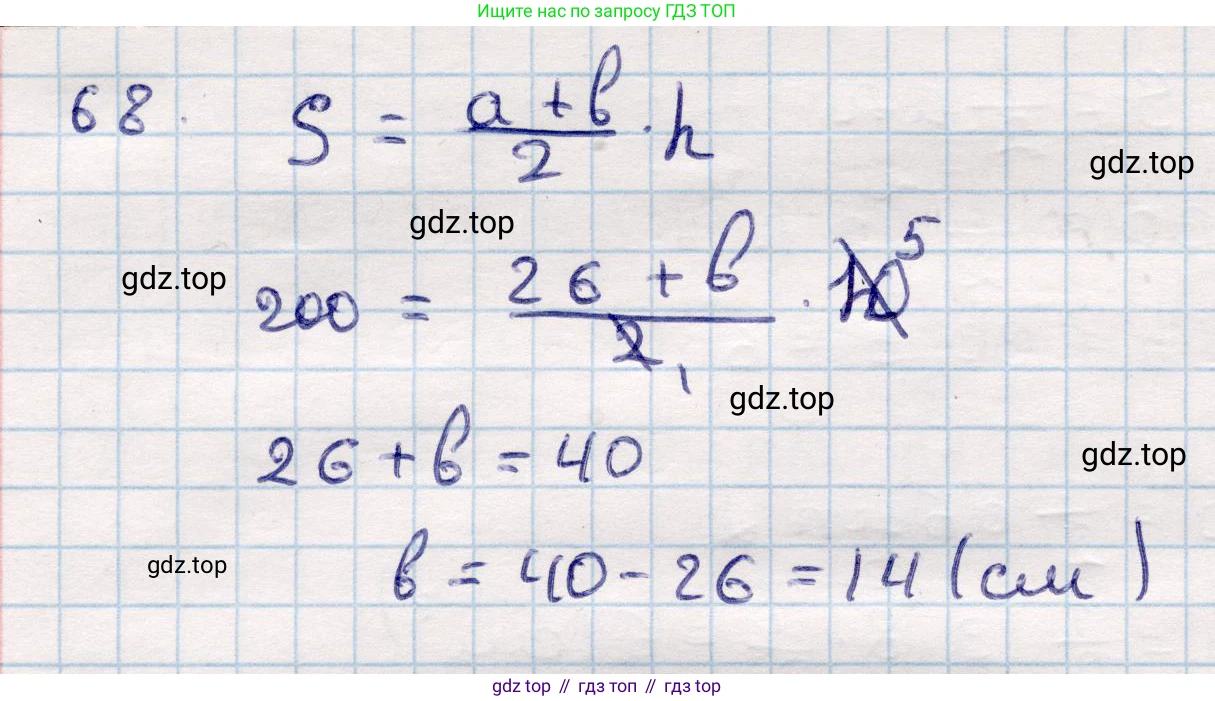 Ищите нас по запросу ГДЗ ТОП
68. S = (a + b)/2 · h
gdz.top
gdz.top
gdz.top
200 = (26 + b)/2 1 · 10 5
gdz.top
26 + b = 40
gdz.top
b = 40 - 26 = 14 (см)
gdz.top
gdz top // гдз топ // гдз top